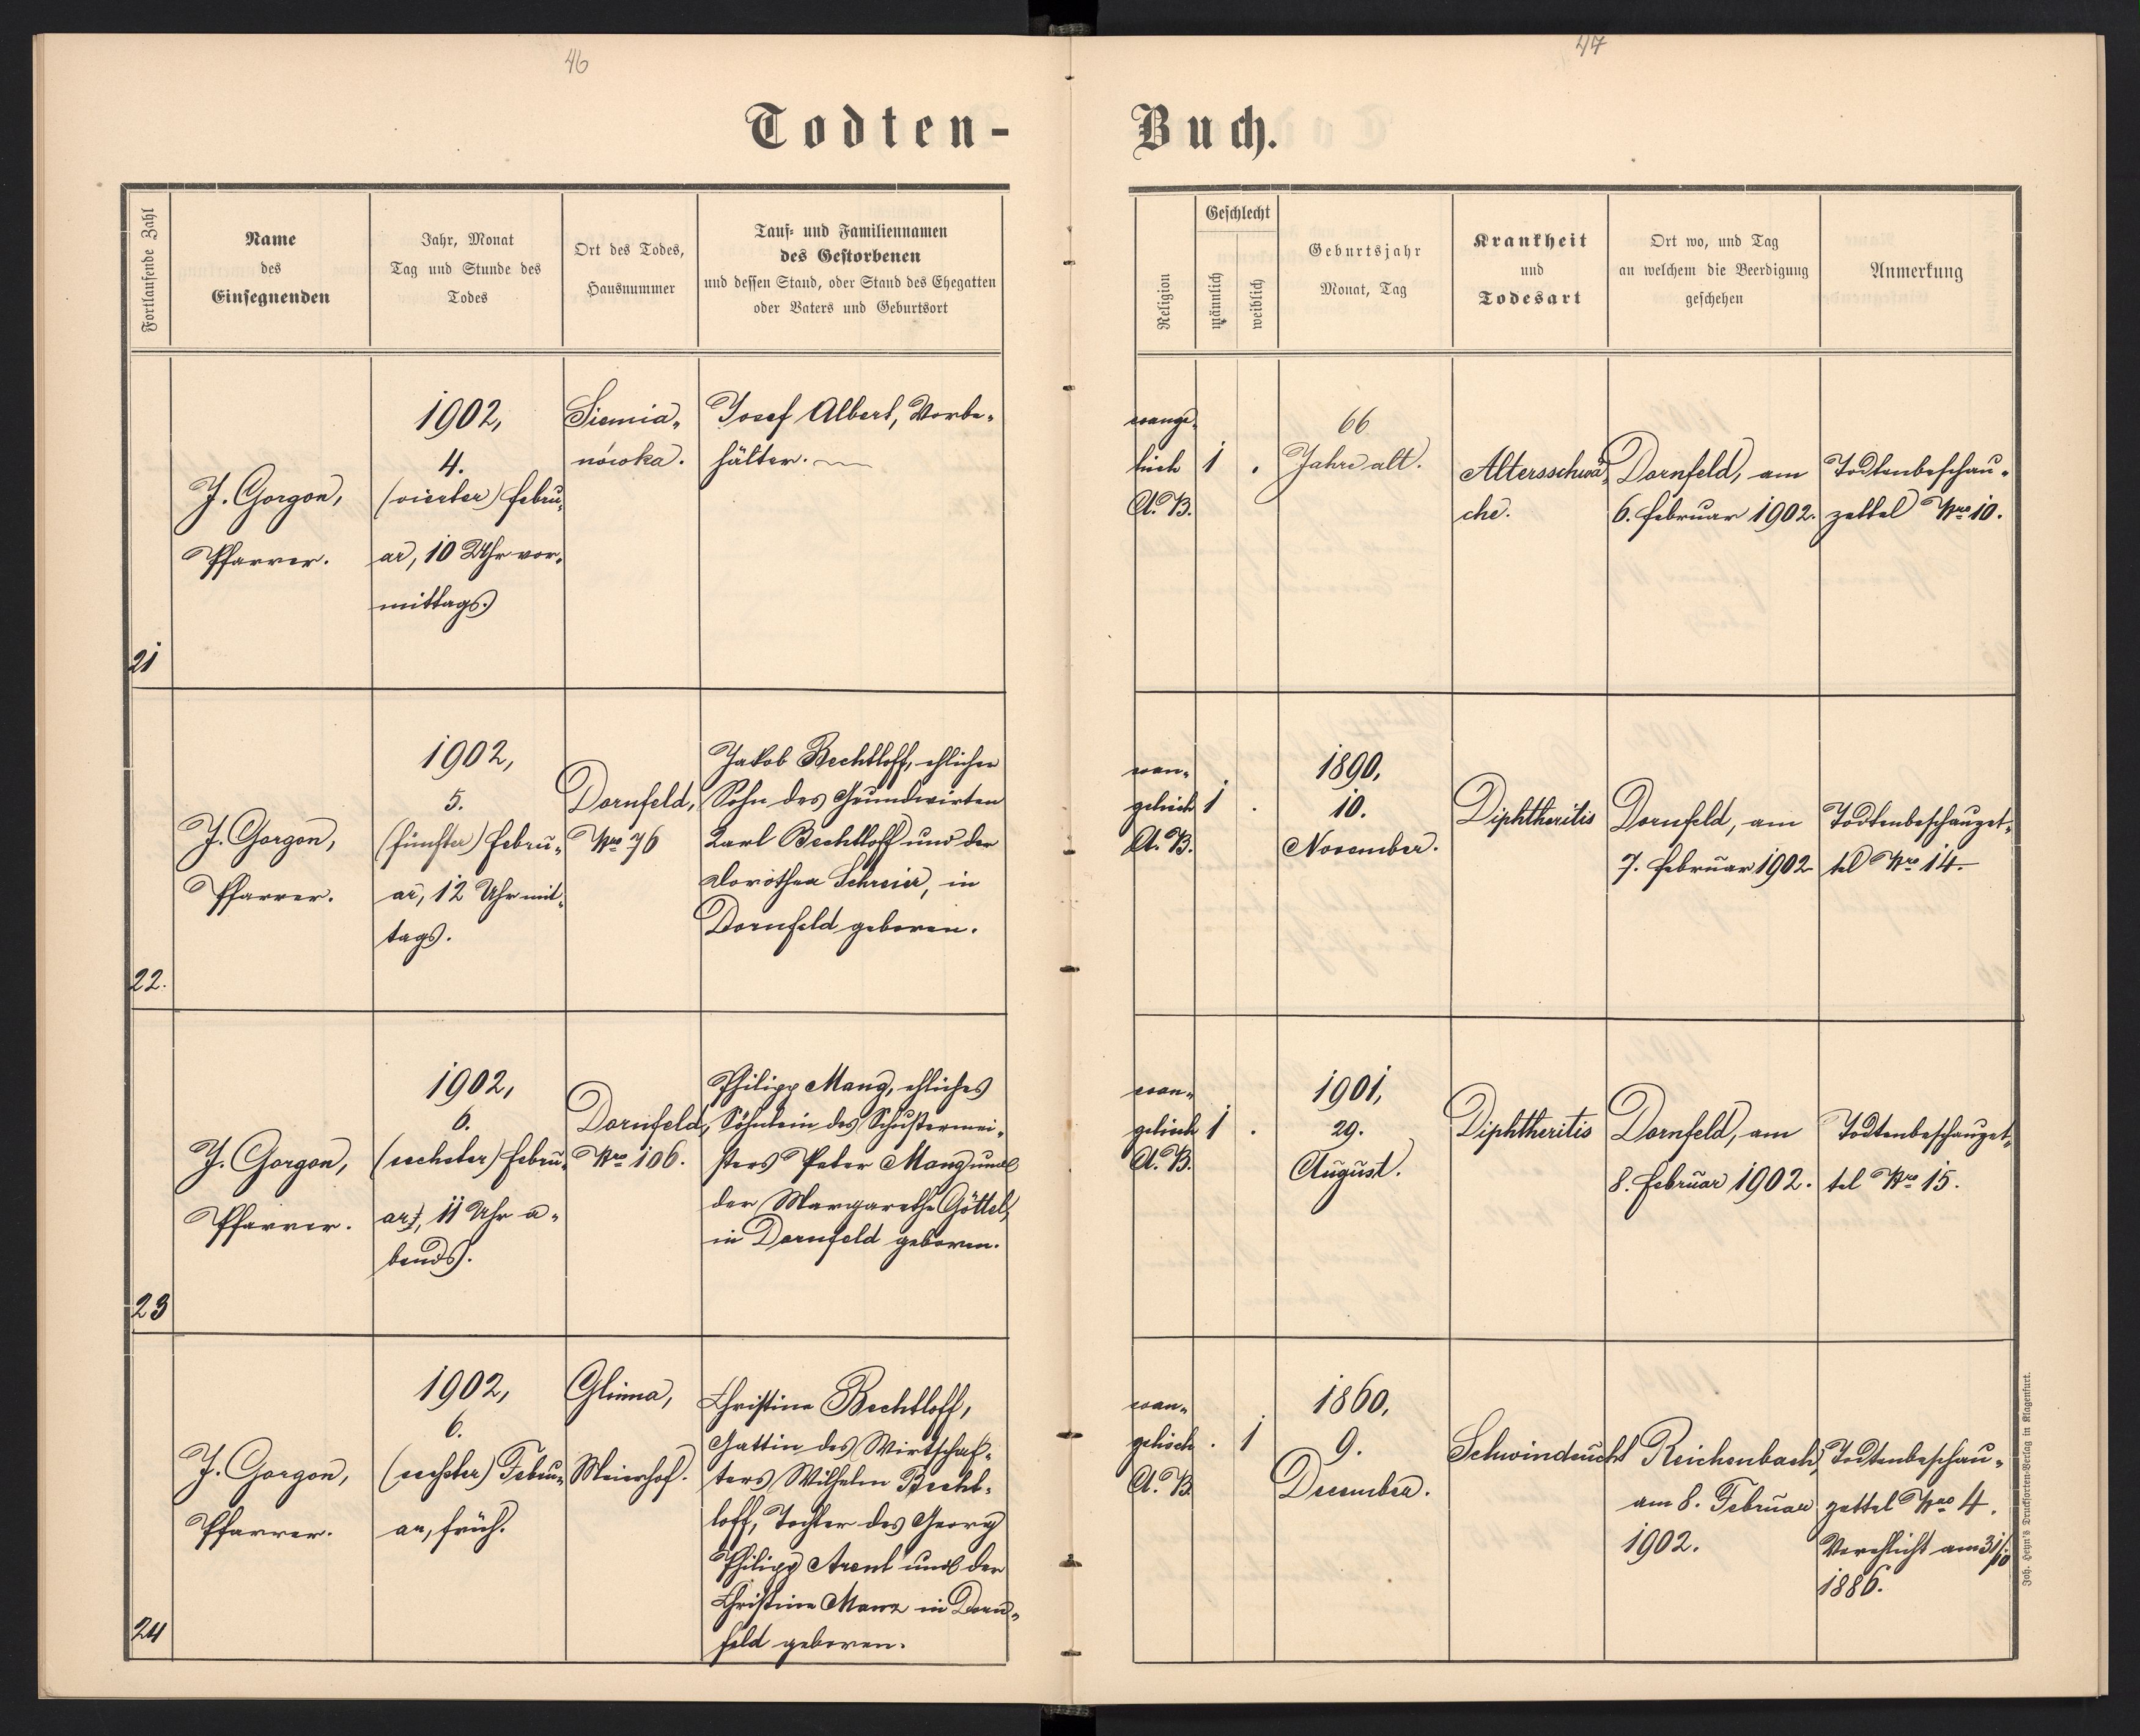 46
47
Todten-
Buch.
Fortlaufende Zahl
Name
des
Einsegnenden
Jahr, Monat
Tag und Stunde des
Todes
Ort des Todes,
Hausnummer
Tauf- und Familiennamen
des Gestorbenen
und dessen Stand, oder Stand des Ehegatten
oder Vaters und Geburtsort
Religion
Geschlecht
männlich
weiblich
Geburtsjahr
Monat, Tag
Krankheit
und
Todesart
Ort wo, und Tag
an welchem die Beerdigung
geschehen
Anmerkung
21
J. Gorgon,
Pfarrer.
1902,
4.
(vierter) Febru-
ar, 10 Uhr vor-
mittags.
Siemia-
nówka.
Josef Albert, Vorbe-
hälter.
evange-
lisch
A. B.
1 .
66
Jahre alt.
Altersschwä-
che.
Dornfeld, am
6. Februar 1902.
Todtenbeschau-
zettel Nro 10.
22.
J. Gorgon,
Pfarrer.
1902,
5.
(fünfter) Febru-
ar, 12 Uhr mit-
tags.
Dornfeld,
Nro 76
Jakob Bechtloff, ehlicher
Sohn des Grundwirten
Karl Bechtloff und der
Dorothea Schreier, in
Dornfeld geboren.
evan-
gelisch
A. B.
1 .
1890,
10.
November.
Diphtheritis
Dornfeld, am
7. Februar 1902
Todtenbeschauzet-
tel Nro 14.
23
J. Gorgon,
Pfarrer.
1902,
6.
(sechster) Febru-
ar, 11 Uhr a-
bends.
Dornfeld,
Nro 106.
Philipp Mang, ehliches
Söhnlein des Schustermei-
sters Peter Mang und
der Margarethe Göttel,
in Dornfeld geboren.
evan-
gelisch
A. B.
1 .
1901,
29.
August.
Diphtheritis
Dornfeld, am
8. Februar 1902.
Todtenbeschauzet-
tel Nro 15.
24
J. Gorgon,
Pfarrer.
1902,
6.
(sechster) Febru-
ar, früh.
Glinna,
Meierhof.
Christine Bechtloff,
Gattin des Wirtschaf-
ters Wilhelm Becht-
loff, Tochter des Georg
Philipp Arent und der
Christine Manz in Dorn-
feld geboren.
evan-
gelisch
A. B.
. 1
1860,
9.
December.
Schwindsucht
Reichenbach,
am 8. Februar
1902.
Todtenbeschau-
zettel Nro 4.
Verehlicht am 31/10
1886.
Joh. Heyn's Drucksorten-Verlag in Klagenfurt.